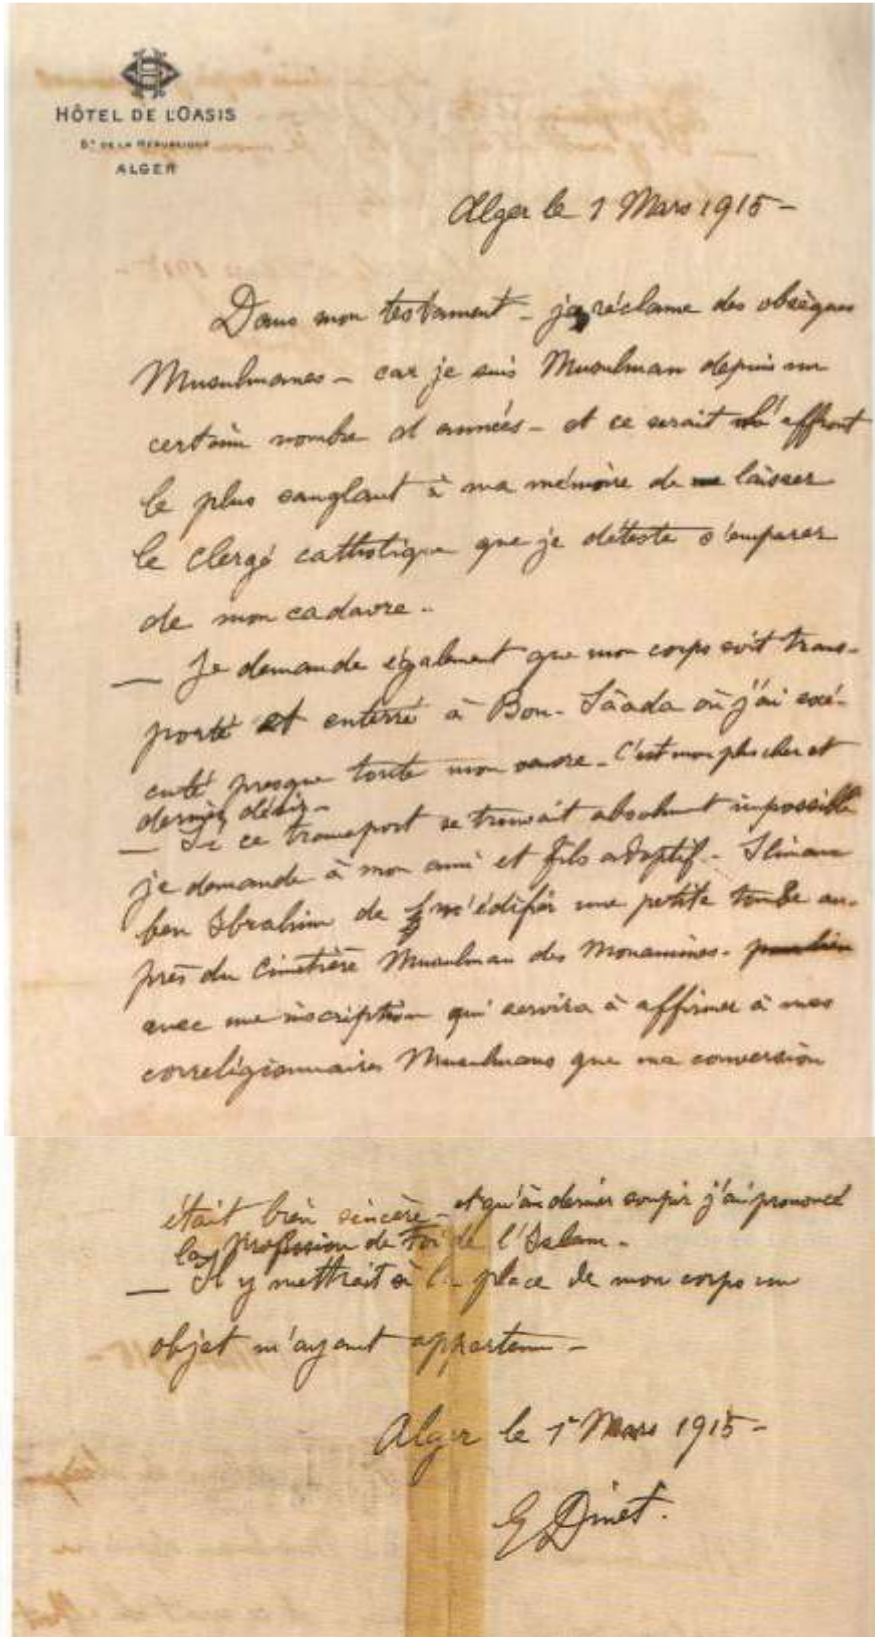 HÔTEL DE L'OASIS
Bd DE LA RÉPUBLIQUE
ALGER
Alger le 1 Mars 1915 -
Dans mon testament - je réclame des obsèques
Musulmanes - car je suis Musulman depuis un
certain nombre d'années - et ce serait l'affront
le plus sanglant à ma mémoire de laisser
le clergé catholique que je déteste s'emparer
de mon cadavre -
— Je demande également que mon corps soit trans-
porté et enterré à Bou-Sâada où j'ai exé-
cuté presque toute mon œuvre - C'est mon plus cher et
dernier désir -
— Si ce transport se trouvait absolument impossible
je demande à mon ami et fils adoptif - Sliman
ben Ibrahim de m'édifier une petite tombe au-
près du Cimetière Musulman des Monamines -
avec une inscription qui servira à affirmer à mes
correligionnaires Musulmans que ma conversion
était bien sincère - et qu'au dernier soupir j'ai prononcé
la profession de Foi de l'Islam -
— Il y mettrait à la place de mon corps un
objet m'ayant appartenu -
Alger le 1er Mars 1915 -
E Dinet.